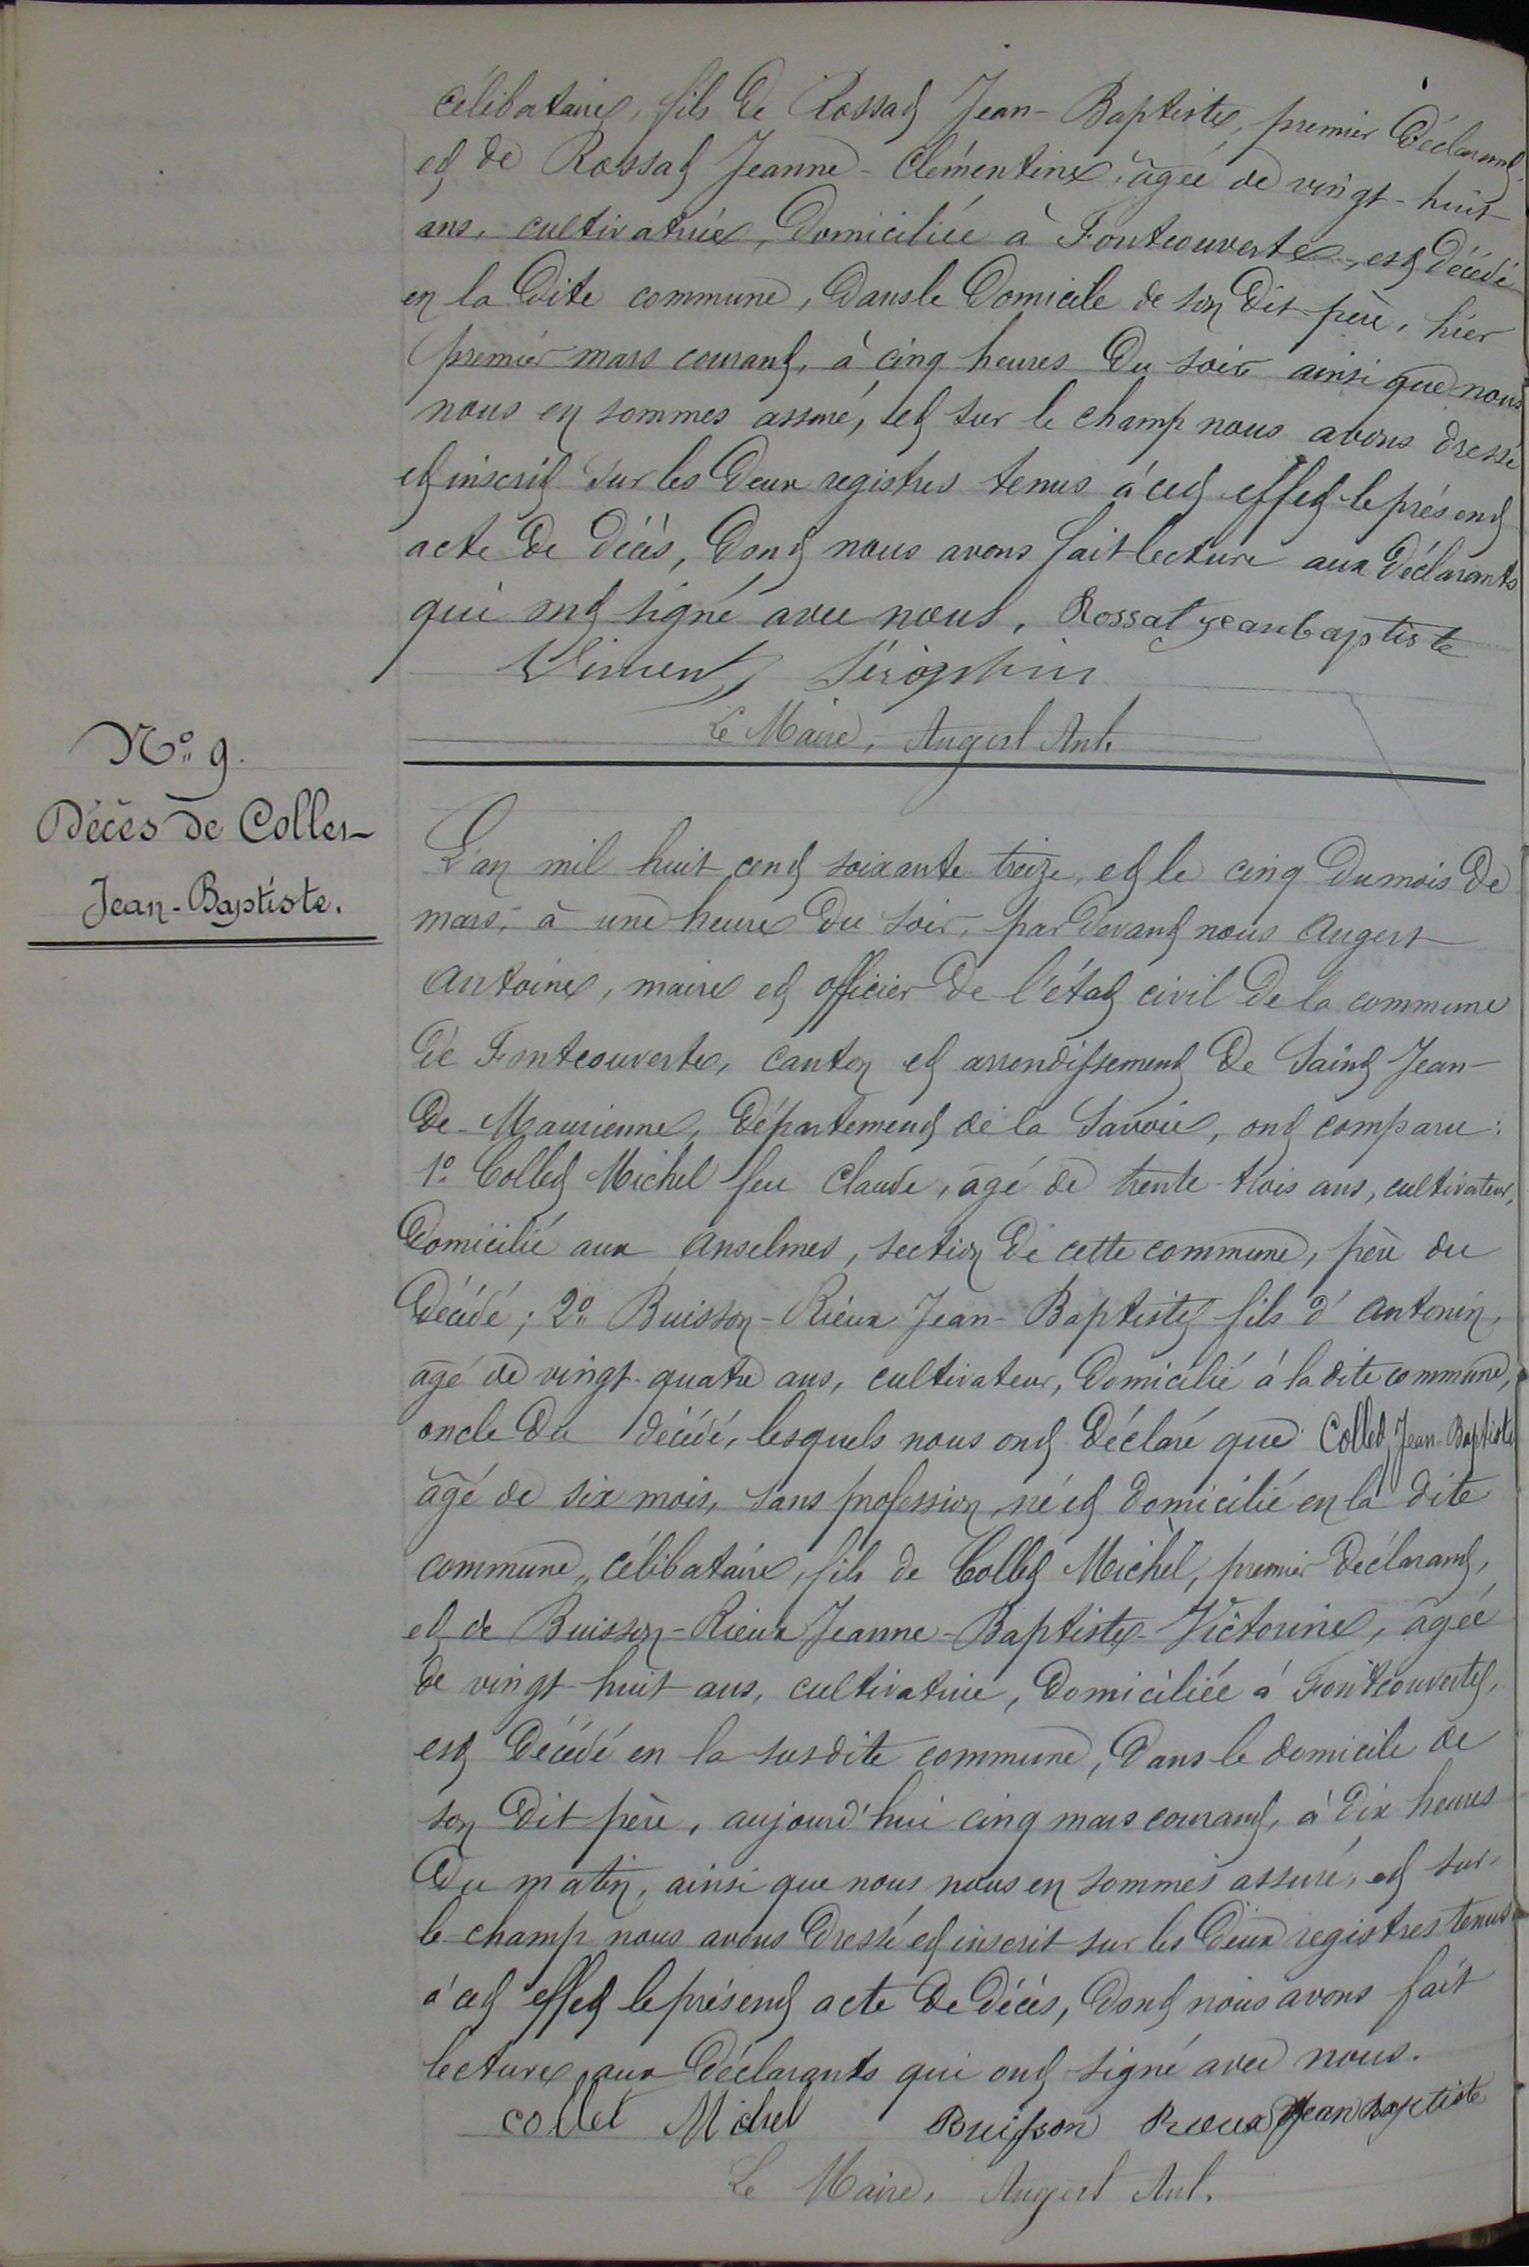 célibataire, fils de Rossat Jean-Baptiste, premier déclarant,
et de Rossat Jeanne-Clémentine, âgée de vingt-huit
ans, cultivatrice, domiciliée à Fontcouverte, est décédé
en la dite commune, dans le domicile de son dit père, hier
premier mars courant, à cinq heures du soir ainsi que nous
nous en sommes assuré, et sur le champ nous avons dressé
et inscrit sur les deux registres tenus à cet effet le présent
acte de décès, dont nous avons fait lecture aux déclarants
qui ont signé avec nous. Rossat jeanbaptiste
Vincent Séraphin
Le Maire, Augert Ant.
N° 9.
Décès de Collet
Jean-Baptiste.
L'an mil huit cent soixante treize, et le cinq du mois de
mars, à une heure du soir, par devant nous Augert
Antoine, maire et officier de l'état civil de la commune
de Fontcouverte, canton et arrondissement de Saint Jean-
de-Maurienne, département de la Savoie, ont comparu:
1° Collet Michel feu Claude, âgé de trente-trois ans, cultivateur,
domicilié aux Anselmes, section de cette commune, père du
décédé; 2° Buisson-Rieux Jean-Baptiste fils d'Antonin,
âgé de vingt-quatre ans, cultivateur, domicilié à la dite commune,
oncle du décédé, lesquels nous ont déclaré que Collet Jean-Baptiste
âgé de six mois, sans profession, né et domicilié en la dite
commune, célibataire, fils de Collet Michel, premier déclarant,
et de Buisson-Rieux Jeanne-Baptiste-Victorine, âgée
de vingt-huit ans, cultivatrice, domiciliée à Fontcouverte,
est décédé en la susdite commune, dans le domicile de
son dit père, aujourd'hui cinq mars courant, à dix heures
du matin, ainsi que nous nous en sommes assuré, et sur
le champ nous avons dressé et inscrit sur les deux registres tenus
à cet effet le présent acte de décès, dont nous avons fait
lecture aux déclarants qui ont signé avec nous.
collet Michel Buisson Rieux Jean Baptiste
Le Maire, Augert Ant.